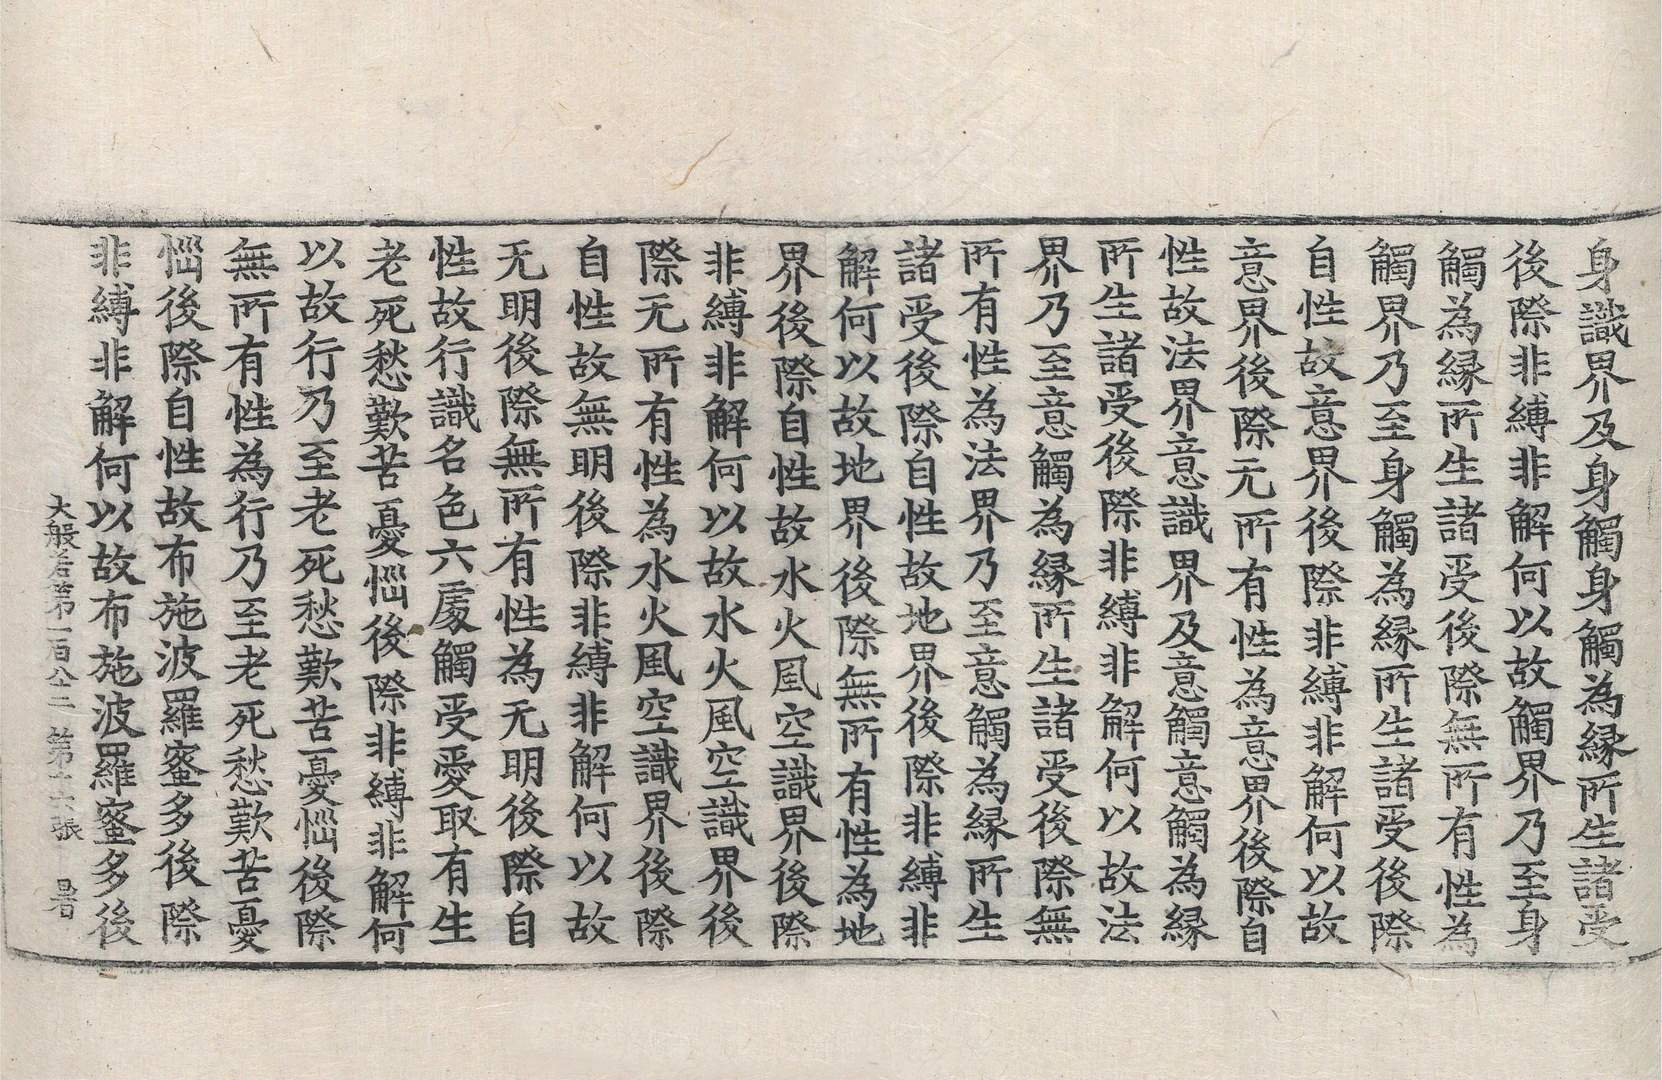 身識界及身觸身觸為縁所生諸受
後際非縛非解何以故觸界乃至身
觸為縁所生諸受後際無所有性為
觸界乃至身觸為縁所生諸受後際
自性故意界後際非縛非解何以故
意界後際无所有性為意界後際自
性故法界意識界及意觸意觸為縁
所生諸受後際非縛非解何以故法
界乃至意觸為縁所生諸受後際無
所有性為法界乃至意觸為縁所生
諸受後際自性故地界後際非縛非
解何以故地界後際無所有性為地
界後際自性故水火風空識界後際
非縛非解何以故水火風空識界後
際无所有性為水火風空識界後際
自性故無明後際非縛非解何以故
无明後際無所有性為无明後際自
性故行識名色六處觸受愛取有生
老死愁歎苦憂惱後際非縛非解何
以故行乃至老死愁歎苦憂惱後際
無所有性為行乃至老死愁歎苦憂
惱後際自性故布施波羅蜜多後際
非縛非解何以故布施波羅蜜多後
大般若第一百八十二 第十六張 暑